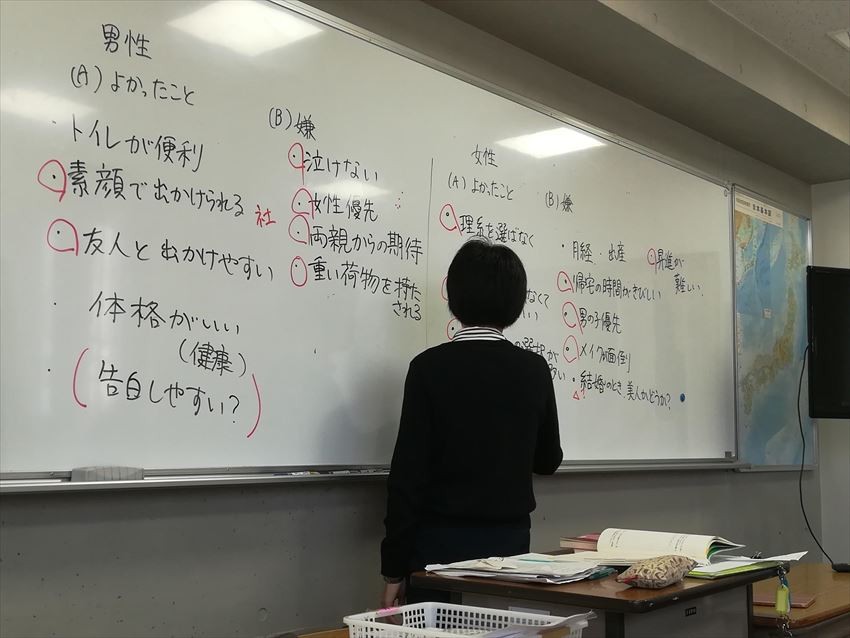 男性
(A) よかったこと
トイレが便利
素顔で出かけられる
社
友人と出かけやすい
体格がいい
(健康)
(告白しやすい?)
(B) 嫌
泣けない
女性優先
両親からの期待
重い荷物を持た
される
女性
(A) よかったこと
理系を選ばなく
なくて
い
選択が
(B) 嫌
・月経・出産
帰宅の時間がきびしい
男の子優先
メイクが面倒
・結婚のとき、美人かどうか?
昇進が
難しい